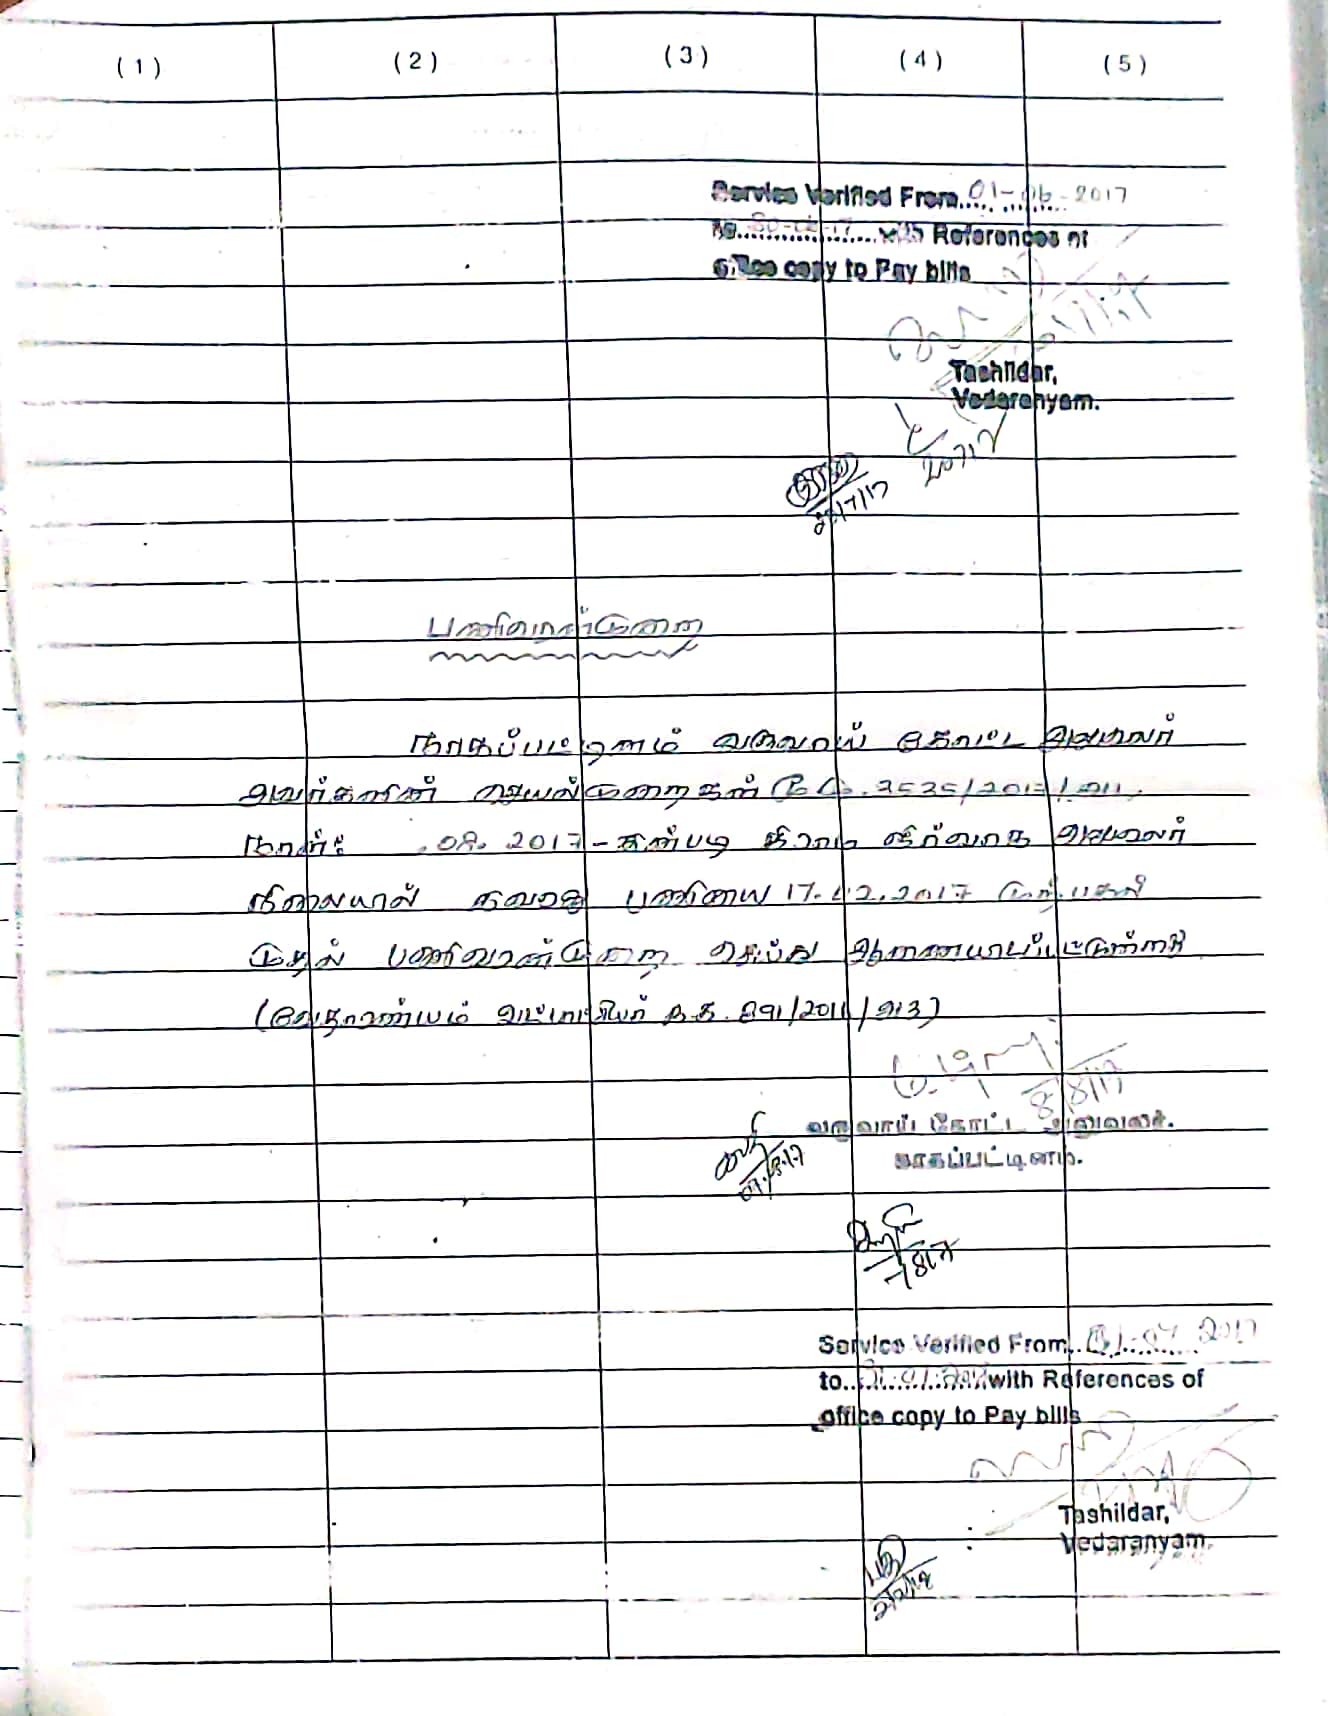 (1) (2) (3) (4) (5)
Service Verified From 01-06-2017
to 30-06-17 with References of
office copy to Pay bills
Tashildar,
Vedaranyam.
20/7/17
பணிவரன்முறை
நாகப்பட்டினம் வருவாய் கோட்ட அலுவலர்
அவர்களின் செயல்முறைகள் ந.க. 2535/2017/அ1,
நாள்: .08.2017-ன்படி கிராம நிர்வாக அலுவலர்
நிலையில் பணியை 17.02.2017 முற்பகல்
முதல் பணிவரன்முறை செய்து ஆணையிடப்பட்டுள்ளது
(வேதாரண்யம் வட்டாட்சியர் ந.க. 891/2011/அ3)
8/8/17
வருவாய் கோட்ட அலுவலர்.
நாகப்பட்டினம்.
07.8.17
7/8/17
Service Verified From 01.07.2017
to with References of
office copy to Pay bills
Tashildar,
Vedaranyam.
2/2/18